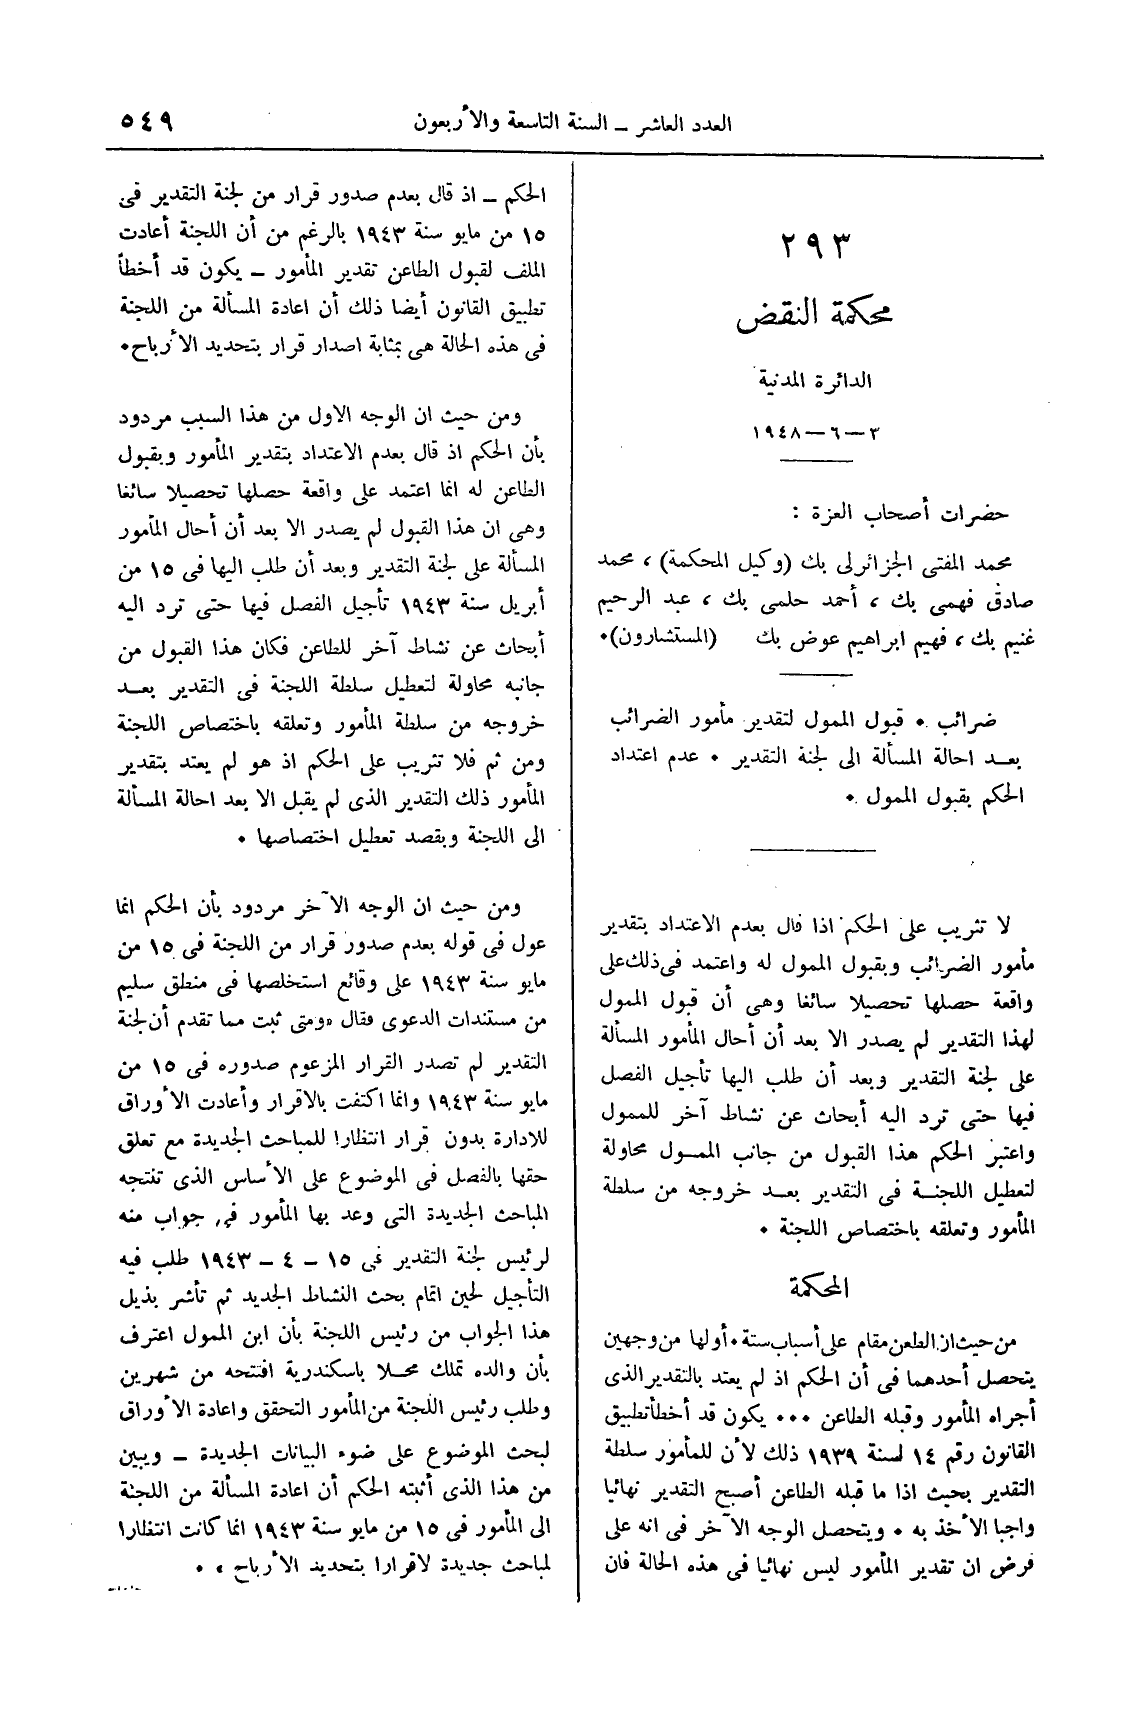 العدد العاشر ــ السنة التاسعة والأربعون
٥٤٩
٢٩٣
محكمة النقض
الدائرة المدنية
٣ ــ ٦ ــ ١٩٤٨
حضرات أصحاب العزة :
محمد المفتى الجزائرلى بك (وكيل المحكمة) ، محمد
صادق فهمى بك ، أحمد حلمى بك ، عبد الرحيم
غنيم بك ، فهيم ابراهيم عوض بك (المستشارون)٠
ضرائب ٠ قبول الممول لتقدير مأمور الضرائب
بعد احالة المسألة الى لجنة التقدير ٠ عدم اعتداد
الحكم بقبول الممول ٠
لا تثريب على الحكم اذا قال بعدم الاعتداد بتقدير
مأمور الضرائب وبقبول الممول له واعتمد فى ذلك على
واقعة حصلها تحصيلا سائغا وهى أن قبول الممول
لهذا التقدير لم يصدر الا بعد أن أحال المأمور المسألة
على لجنة التقدير وبعد أن طلب اليها تأجيل الفصل
فيها حتى ترد اليه أبحاث عن نشاط آخر للممول
واعتبر الحكم هذا القبول من جانب الممول محاولة
لتعطيل اللجنة فى التقدير بعد خروجه من سلطة
المأمور وتعلقه باختصاص اللجنة ٠
المحكمة
من حيث ان الطعن مقام على أسباب ستة٠ أولها من وجهين
يتحصل أحدهما فى أن الحكم اذ لم يعتد بالتقدير الذى
أجراه المأمور وقبله الطاعن ٠٠٠ يكون قد أخطأ تطبيق
القانون رقم ١٤ لسنة ١٩٣٩ ذلك لأن للمأمور سلطة
التقدير بحيث اذا ما قبله الطاعن أصبح التقدير نهائيا
واجبا الأخذ به ٠ ويتحصل الوجه الآخر فى انه على
فرض ان تقدير المأمور ليس نهائيا فى هذه الحالة فان
الحكم ــ اذ قال بعدم صدور قرار من لجنة التقدير فى
١٥ من مايو سنة ١٩٤٣ بالرغم من أن اللجنة أعادت
الملف لقبول الطاعن تقدير المأمور ــ يكون قد أخطأ
تطبيق القانون أيضا ذلك أن اعادة المسألة من اللجنة
فى هذه الحالة هى بمثابة اصدار قرار بتحديد الأرباح٠
ومن حيث ان الوجه الاول من هذا السبب مردود
بأن الحكم اذ قال بعدم الاعتداد بتقدير المأمور وبقبول
الطاعن له انما اعتمد على واقعة حصلها تحصيلا سائغا
وهى ان هذا القبول لم يصدر الا بعد أن أحال المأمور
المسألة على لجنة التقدير وبعد أن طلب اليها فى ١٥ من
أبريل سنة ١٩٤٣ تأجيل الفصل فيها حتى ترد اليه
أبحاث عن نشاط آخر للطاعن فكان هذا القبول من
جانبه محاولة لتعطيل سلطة اللجنة فى التقدير بعد
خروجه من سلطة المأمور وتعلقه باختصاص اللجنة
ومن ثم فلا تثريب على الحكم اذ هو لم يعتد بتقدير
المأمور ذلك التقدير الذى لم يقبل الا بعد احالة المسألة
الى اللجنة وبقصد تعطيل اختصاصها ٠
ومن حيث ان الوجه الآخر مردود بأن الحكم انما
عول فى قوله بعدم صدور قرار من اللجنة فى ١٥ من
مايو سنة ١٩٤٣ على وقائع استخلصها فى منطق سليم
من مستندات الدعوى فقال «ومتى ثبت مما تقدم أن لجنة
التقدير لم تصدر القرار المزعوم صدوره فى ١٥ من
مايو سنة ١٩٤٣ وانما اكتفت بالاقرار وأعادت الأوراق
للادارة بدون قرار انتظارا للمباحث الجديدة مع تعلق
حقها بالفصل فى الموضوع على الأساس الذى تنتجه
المباحث الجديدة التى وعد بها المأمور فى جواب منه
لرئيس لجنة التقدير فى ١٥ ــ ٤ ــ ١٩٤٣ طلب فيه
التأجيل لحين اتمام بحث النشاط الجديد ثم تأشر بذيل
هذا الجواب من رئيس اللجنة بأن ابن الممول اعترف
بأن والده تملك محلا باسكندرية افتتحه من شهرين
وطلب رئيس اللجنة من المأمور التحقق واعادة الأوراق
لبحث الموضوع على ضوء البيانات الجديدة ــ ويبين
من هذا الذى أثبته الحكم أن اعادة المسألة من اللجنة
الى المأمور فى ١٥ من مايو سنة ١٩٤٣ انما كانت انتظارا
لمباحث جديدة لاقرارا بتحديد الأرباح » ٠